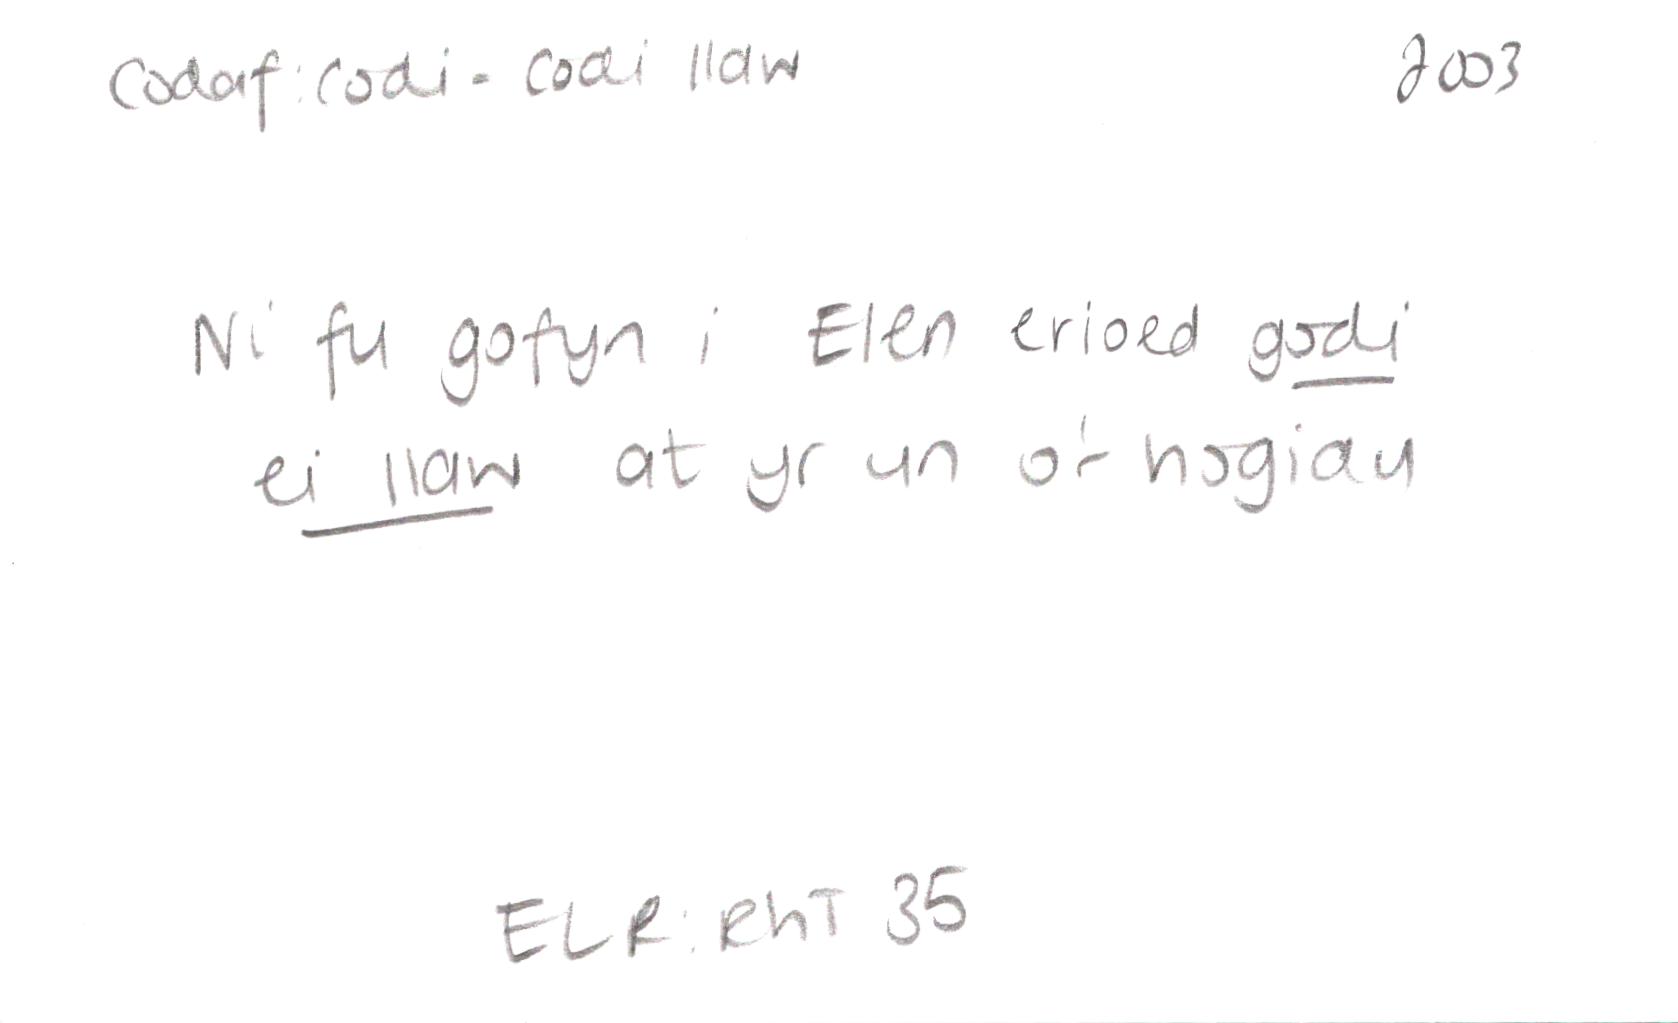 Codaf: Codi - Codi llaw 2003
Ni fu gofyn i Elen erioed godi
ei llaw at yr un o'r hogiau
ELR: RhT 35